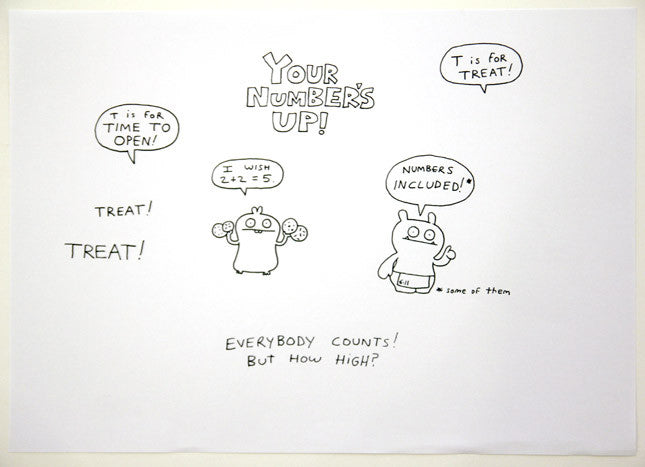 YOUR
NUMBER'S
UP!
T is FOR
TREAT!
T is FOR
TIME TO
OPEN!
I WISH
2+2=5.
NUMBERS
INCLUDED!*
TREAT!
TREAT!
6-11
* some of them
EVERYBODY COUNTS!
BUT HOW HIGH?